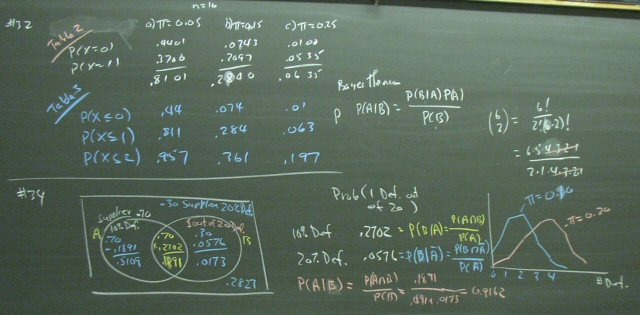 n=16
#32
Table 2
a) π=0.05 b) π=0.15 c) π=0.25
P(X=0) .4401 .0743 .0100
P(X=1) .3706 .2097 .0535
.8101 .2840 .0635
Table 3
P(X≤0) .44 .074 .01
P(X≤1) .811 .284 .063
P(X≤2) .957 .361 .197
Bayes Theorem
P P(A|B) = P(B|A)P(A)
P(B)
(6 2) = 6!
2!(6-2)!
= 6.5.4.3.2.1
2.1.4.3.2.1
#34
.30 Supplier 20% Def
Supplier .70
10% Def.
A
.70
-.1891
.5109
.70
x.2702
.1891
1 out of 20 Def
.30
.0576
.0173
B
.2827
Prob (1 Def. out
of 20)
10% Def. .2702 = P(B|A) = P(A∩B)
P(A)
20% Def. .0576 = P(B|A) = P(B∩A)
P(A)
P(A|B) = P(A∩B) = .1891 = 0.9162
P(B) .1891+.0173
π=0.10
π=0.20
0 1 2 3 4
# Def.